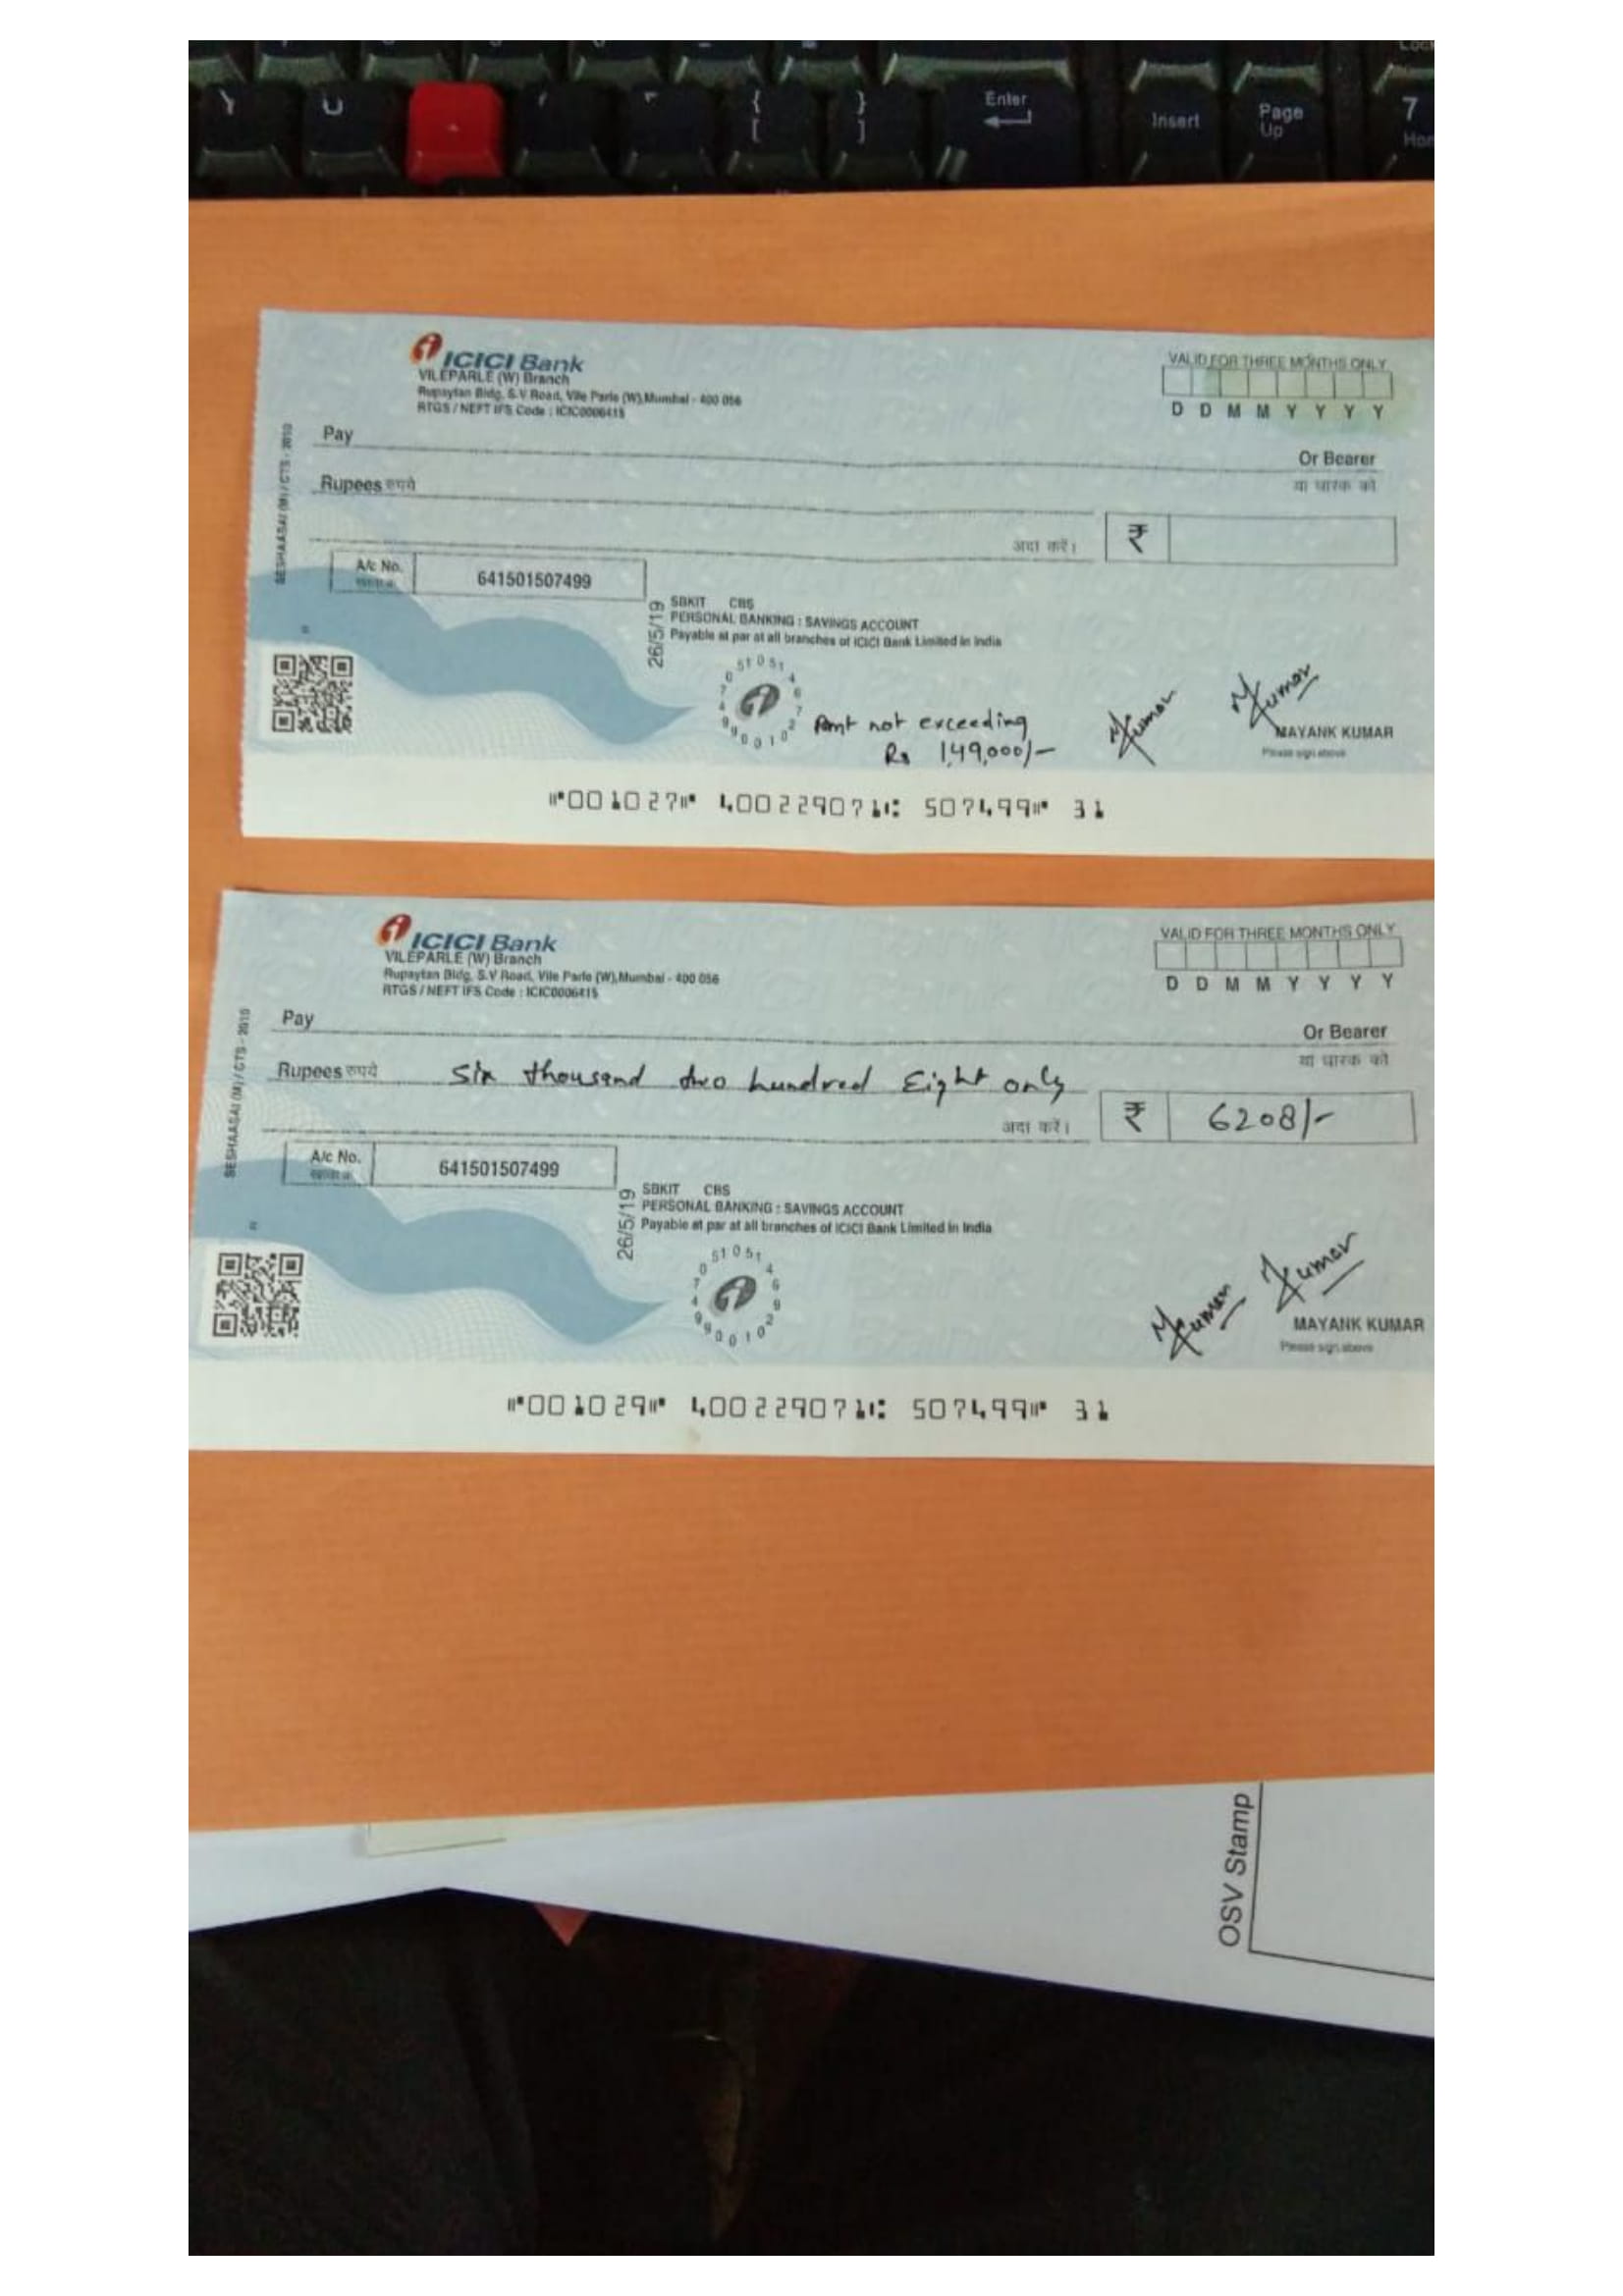 Y U { [ } ] Enter Insert Page Up 7
ICICI Bank
VILEPARLE (W) Branch
Rupaytan Bldg, S.V Road, Vile Parle (W), Mumbai - 400 056
RTGS / NEFT IFS Code : ICIC0006415
VALID FOR THREE MONTHS ONLY
D D M M Y Y Y Y
Pay
Or Bearer
या धारक को
Rupees रुपये
अदा करें।
₹
A/c No.
641501507499
SESHAASAI (M) / CTS - 2010
26/5/19
SBKIT CBS
PERSONAL BANKING : SAVINGS ACCOUNT
Payable at par at all branches of ICICI Bank Limited in India
Amt not exceeding
Rs 1,49,000/-
MKumar
MKumar
MAYANK KUMAR
Please sign above
⑈001027⑈ 400229071⑆ 507499⑈ 31
ICICI Bank
VILEPARLE (W) Branch
Rupaytan Bldg, S.V Road, Vile Parle (W), Mumbai - 400 056
RTGS / NEFT IFS Code : ICIC0006415
VALID FOR THREE MONTHS ONLY
D D M M Y Y Y Y
Pay
Or Bearer
या धारक को
Rupees रुपये Six thousand two hundred Eight only
अदा करें।
₹ 6208/-
A/c No.
641501507499
SESHAASAI (M) / CTS - 2010
26/5/19
SBKIT CBS
PERSONAL BANKING : SAVINGS ACCOUNT
Payable at par at all branches of ICICI Bank Limited in India
MKumar
MKumar
MAYANK KUMAR
Please sign above
⑈001029⑈ 400229071⑆ 507499⑈ 31
OSV Stamp